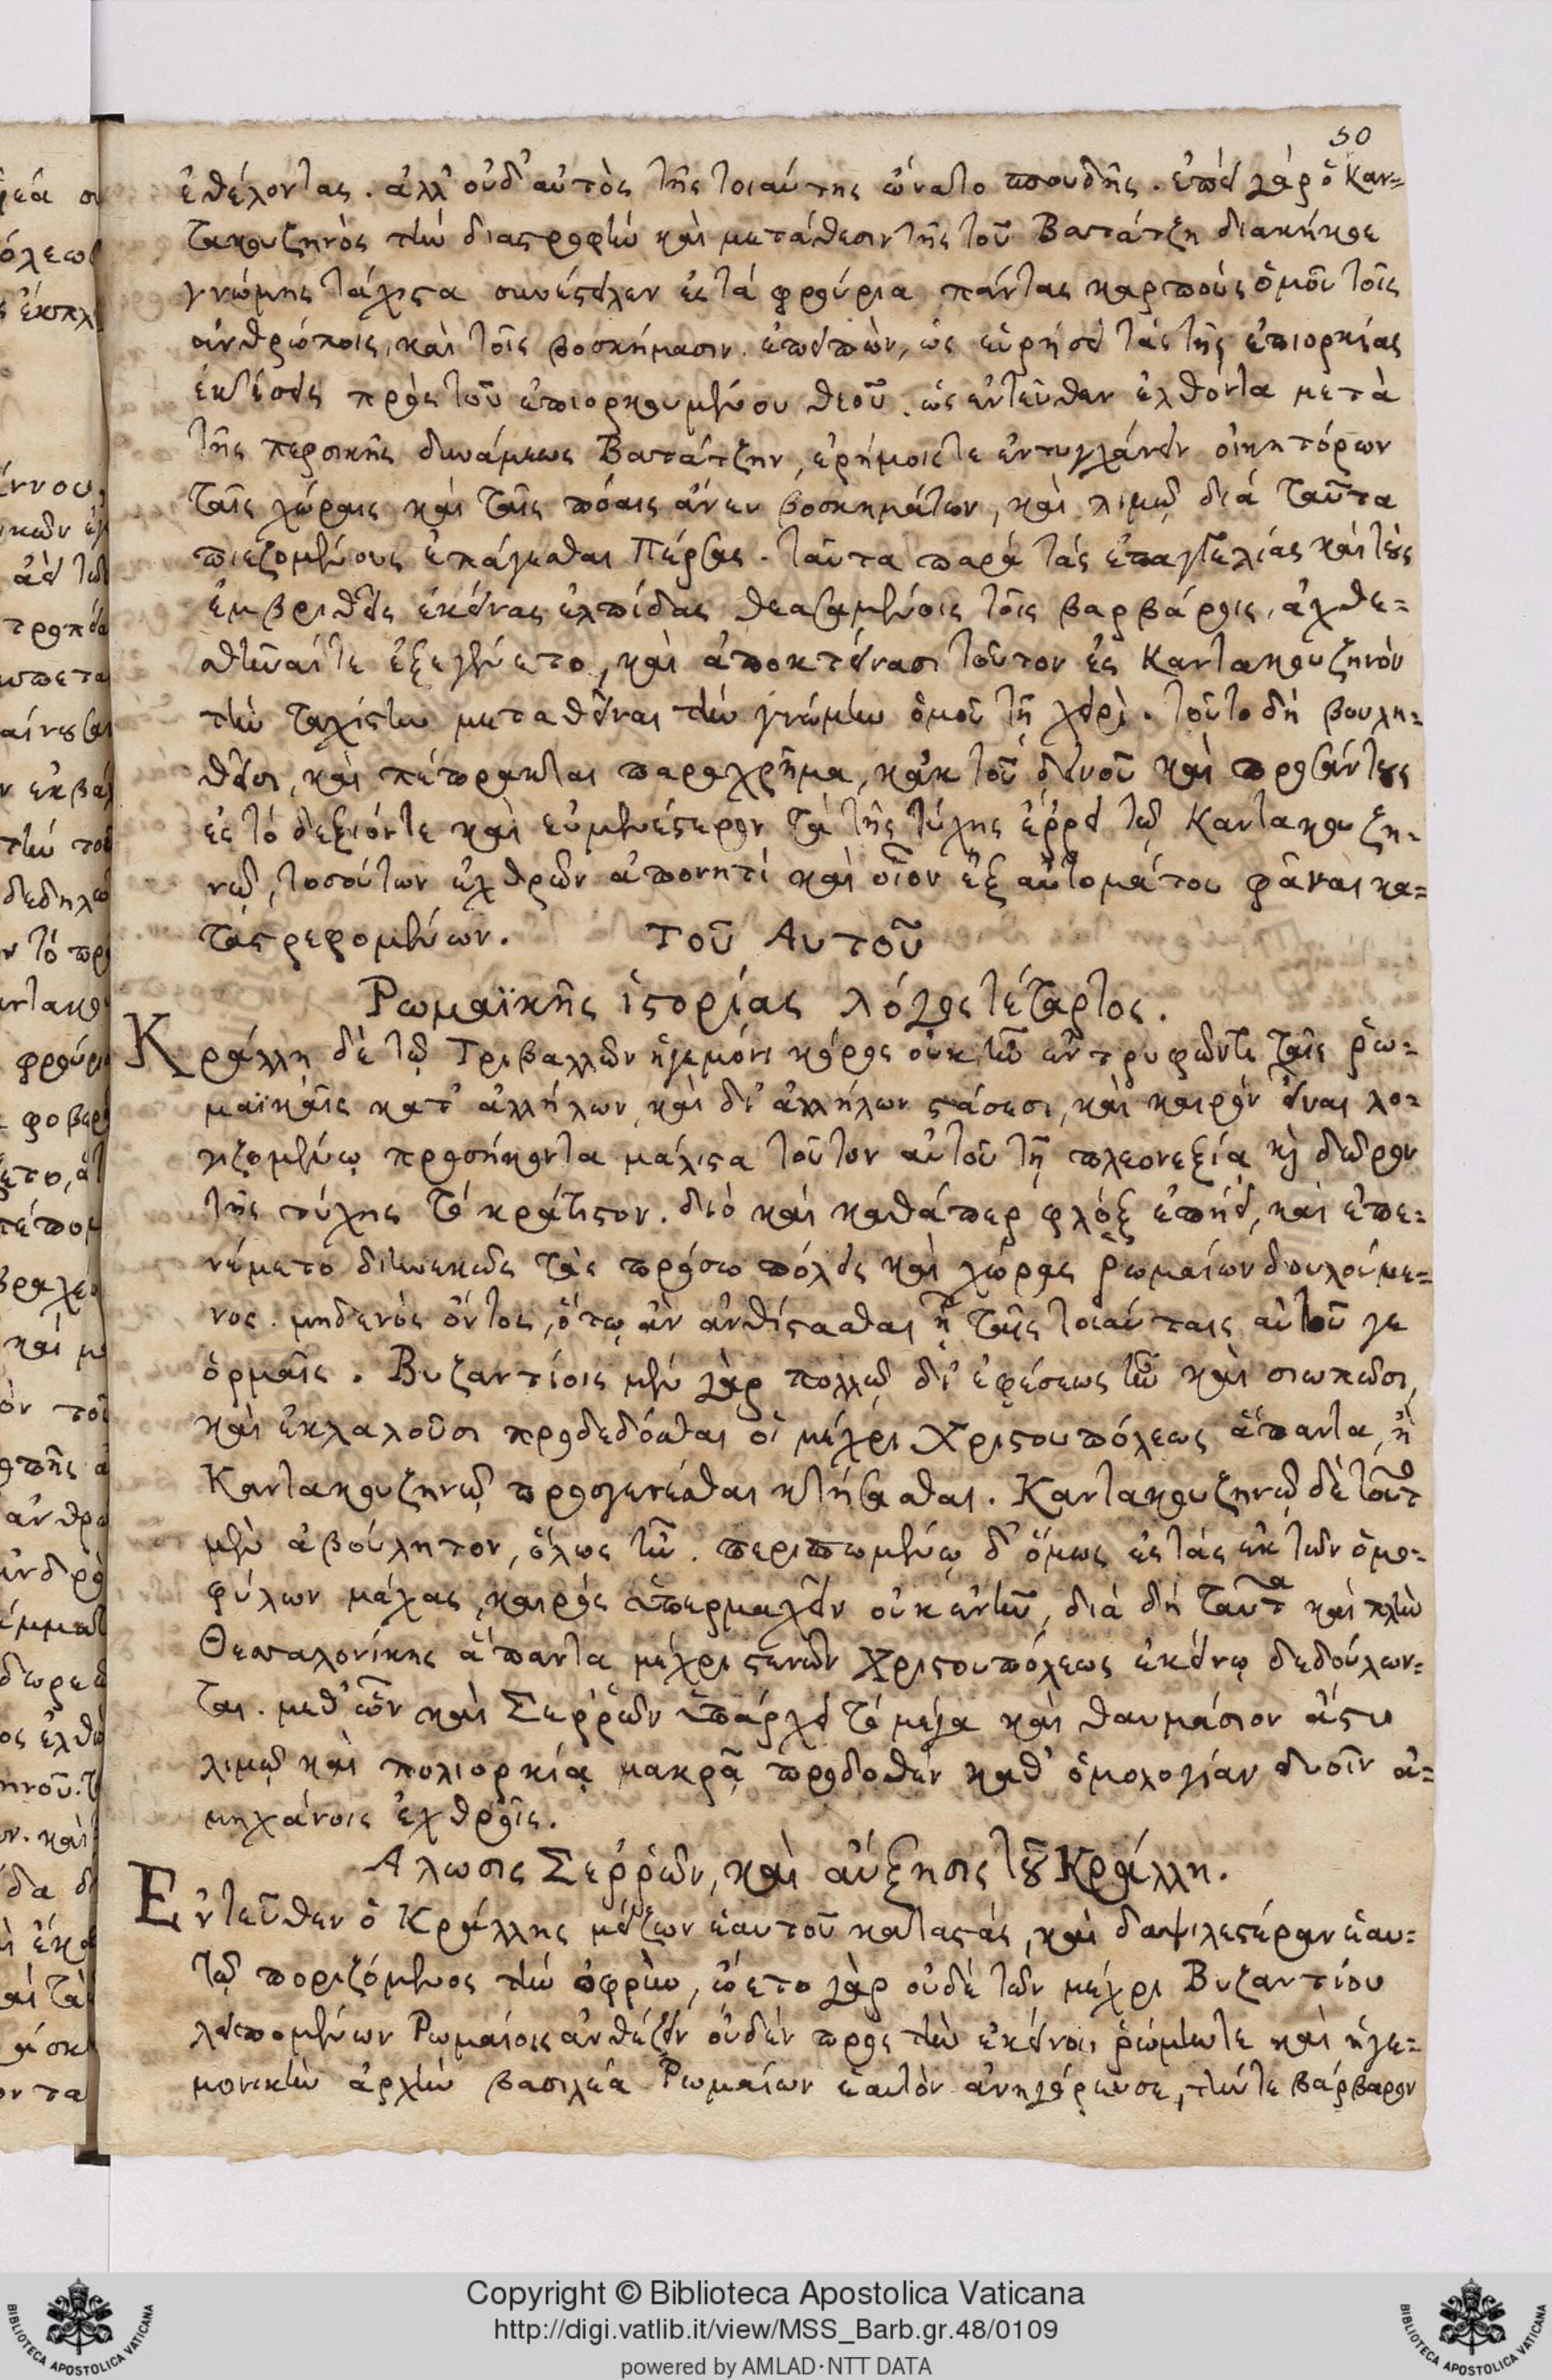 50
ἐθέλοντας. ἀλλ' οὐδ' αὐτὸς τῆς τοιαύτης ὤνατο σπουδῆς. ἐπεὶ γάρ ὁ Καν-
τακουζηνὸς τὴν διαστροφὴν καὶ μετάθεσιν τῆς τοῦ Βατάτζη διακήκοε
γνώμης τάχιστα συνέστειλεν ἐς τὰ φρούρια πάντας καρποὺς ὁμοῦ τοῖς
ἀνθρώποις, καὶ τοῖς βοσκήμασιν. ἐπειπὼν, ὡς εὑρήσει τὰς τῆς ἐπιορκίας
ἐκτίσεις πρὸς τοῦ ἐπιορκουμένου θεοῦ. ὡς ἐντεῦθεν ἐλθόντα μετὰ
τῆς περσικῆς δυνάμεως Βατάτζην, ἐρήμοις τε ἐντυγχάνειν οἰκητόρων
ταῖς χώραις καὶ ταῖς πόαις ἄνευ βοσκημάτων, καὶ λιμῷ διὰ ταῦτα
πιεζομένους ἐπάγεσθαι Πέρσας. ταῦτα παρὰ τὰς ἐπαγγελίας καὶ τὰς
ἐμβριθεῖς ἐκείνας ἐλπίδας θεασαμένοις τοῖς βαρβάροις, ἀχθε-
σθῆναί τε ἐξεγένετο, καὶ ἀποκτείνασι τοῦτον ἐς Καντακουζηνὸν
τὴν ταχίστην μεταθεῖναι τὴν γνώμην ὁμοῦ τῇ χειρὶ. τοῦτο δὴ βουλη-
θεῖσι, καὶ πέπρακται παραχρῆμα, κἀκ τοῦ δεινοῦ καὶ προσάντους
ἐς τὸ δεξιόν τε καὶ εὐμενέστερον τὰ τῆς τύχης ἐῤῥει τῷ Καντακουζη-
νῷ, τοσούτων ἐχθρῶν ἀπονητὶ καὶ οἷον ἐξ αὐτομάτου φᾶναι κα-
ταστρεφομένων. Τοῦ Αυτοῦ
Ρωμαϊκῆς ἱστορίας λόγος τέταρτος.
Κράλλη δὲ τῷ Τριβαλλῶν ἡγεμόνι κόρος οὐκ ἦν ἐντρυφῶντι ταῖς ῥω-
μαϊκαῖς κατ' ἀλλήλων, καὶ δι' ἀλλήλων στάσεσι, καὶ καιρὸν εἶναι λο-
γιζομένῳ προσήκοντα μάλιστα τοῦτον αὐτοῦ τῇ πλεονεξίᾳ κὶ δῶρον
τῆς τύχης τὸ κράτιστον. διὸ καὶ καθάπερ φλὸξ ἐπῄει, καὶ ἐπε-
νέμετο διηνεκῶς τὰς πρόσω πόλεις καὶ χώρας ῥωμαίων δουλούμε-
νος. μηδενὸς ὄντος, ὅτῳ ἀν ἀνθίστασθαι ἦ ταῖς τοιαύταις αὐτοῦ γε
ὁρμαῖς. Βυζαντίοις μὲν γὰρ πολλῷ δι' ἐφέσεως ἦν καὶ σιωπῶσι,
καὶ ἐκλαλοῦσι προδεδόσθαι οἱ μέχρι Χριστουπόλεως ἅπαντα, ἢ
Καντακουζηνῷ προσγενέσθαι κτήσασθαι. Καντακουζηνῷ δὲ τοῦτο
μὲν ἀβούλητον, ὅλως ἦν. περισπωμένῳ δ' ὅμως ἐς τὰς ἐκ τῶν ὁμο-
φύλων μάχας, καιρὸς ὑπερμαχεῖν οὐκ ἐνῆν, διὰ δὴ ταῦτα καὶ πλὴν
Θεσσαλονίκης ἅπαντα μέχρι στενῶν Χριστουπόλεως ἐκείνῳ δεδούλων-
ται. μεθ' ὧν καὶ Σεῤῥῶν ὑπάρχει τὸ μέγα καὶ θαυμάσιον ἄστυ
λιμῷ καὶ πολιορκίᾳ μακρᾷ προδοθὲν καθ' ὁμολογίαν δυσὶν ἀ-
μηχάνοις ἐχθροῖς.
Αλωσις Σεῤῥῶν, καὶ αὔξησις τοῦ Κράλλη.
Εντεῦθεν ὁ Κράλλης μείζων ἑαυτοῦ καταστὰς, καὶ δαψιλεστέραν ἑαυ-
τῷ ποριζόμενος τὴν ὀφρὺν, ᾤετο γὰρ οὐδὲ τῶν μέχρι Βυζαντίου
λειπομένων Ρωμαίοις ἀνθέξειν οὐδὲν προς τὴν ἐκείνου ῥώμην τε καὶ ἡγε-
μονικὴν ἀρχὴν βασιλέα Ρωμαίων ἑαυτὸν ἀνηγόρευσε, τήν τε βάρβαρον
Copyright © Biblioteca Apostolica Vaticana
http://digi.vatlib.it/view/MSS_Barb.gr.48/0109
powered by AMLAD·NTT DATA
BIBLIOTECA APOSTOLICA VATICANA
BIBLIOTECA APOSTOLICA VATICANA